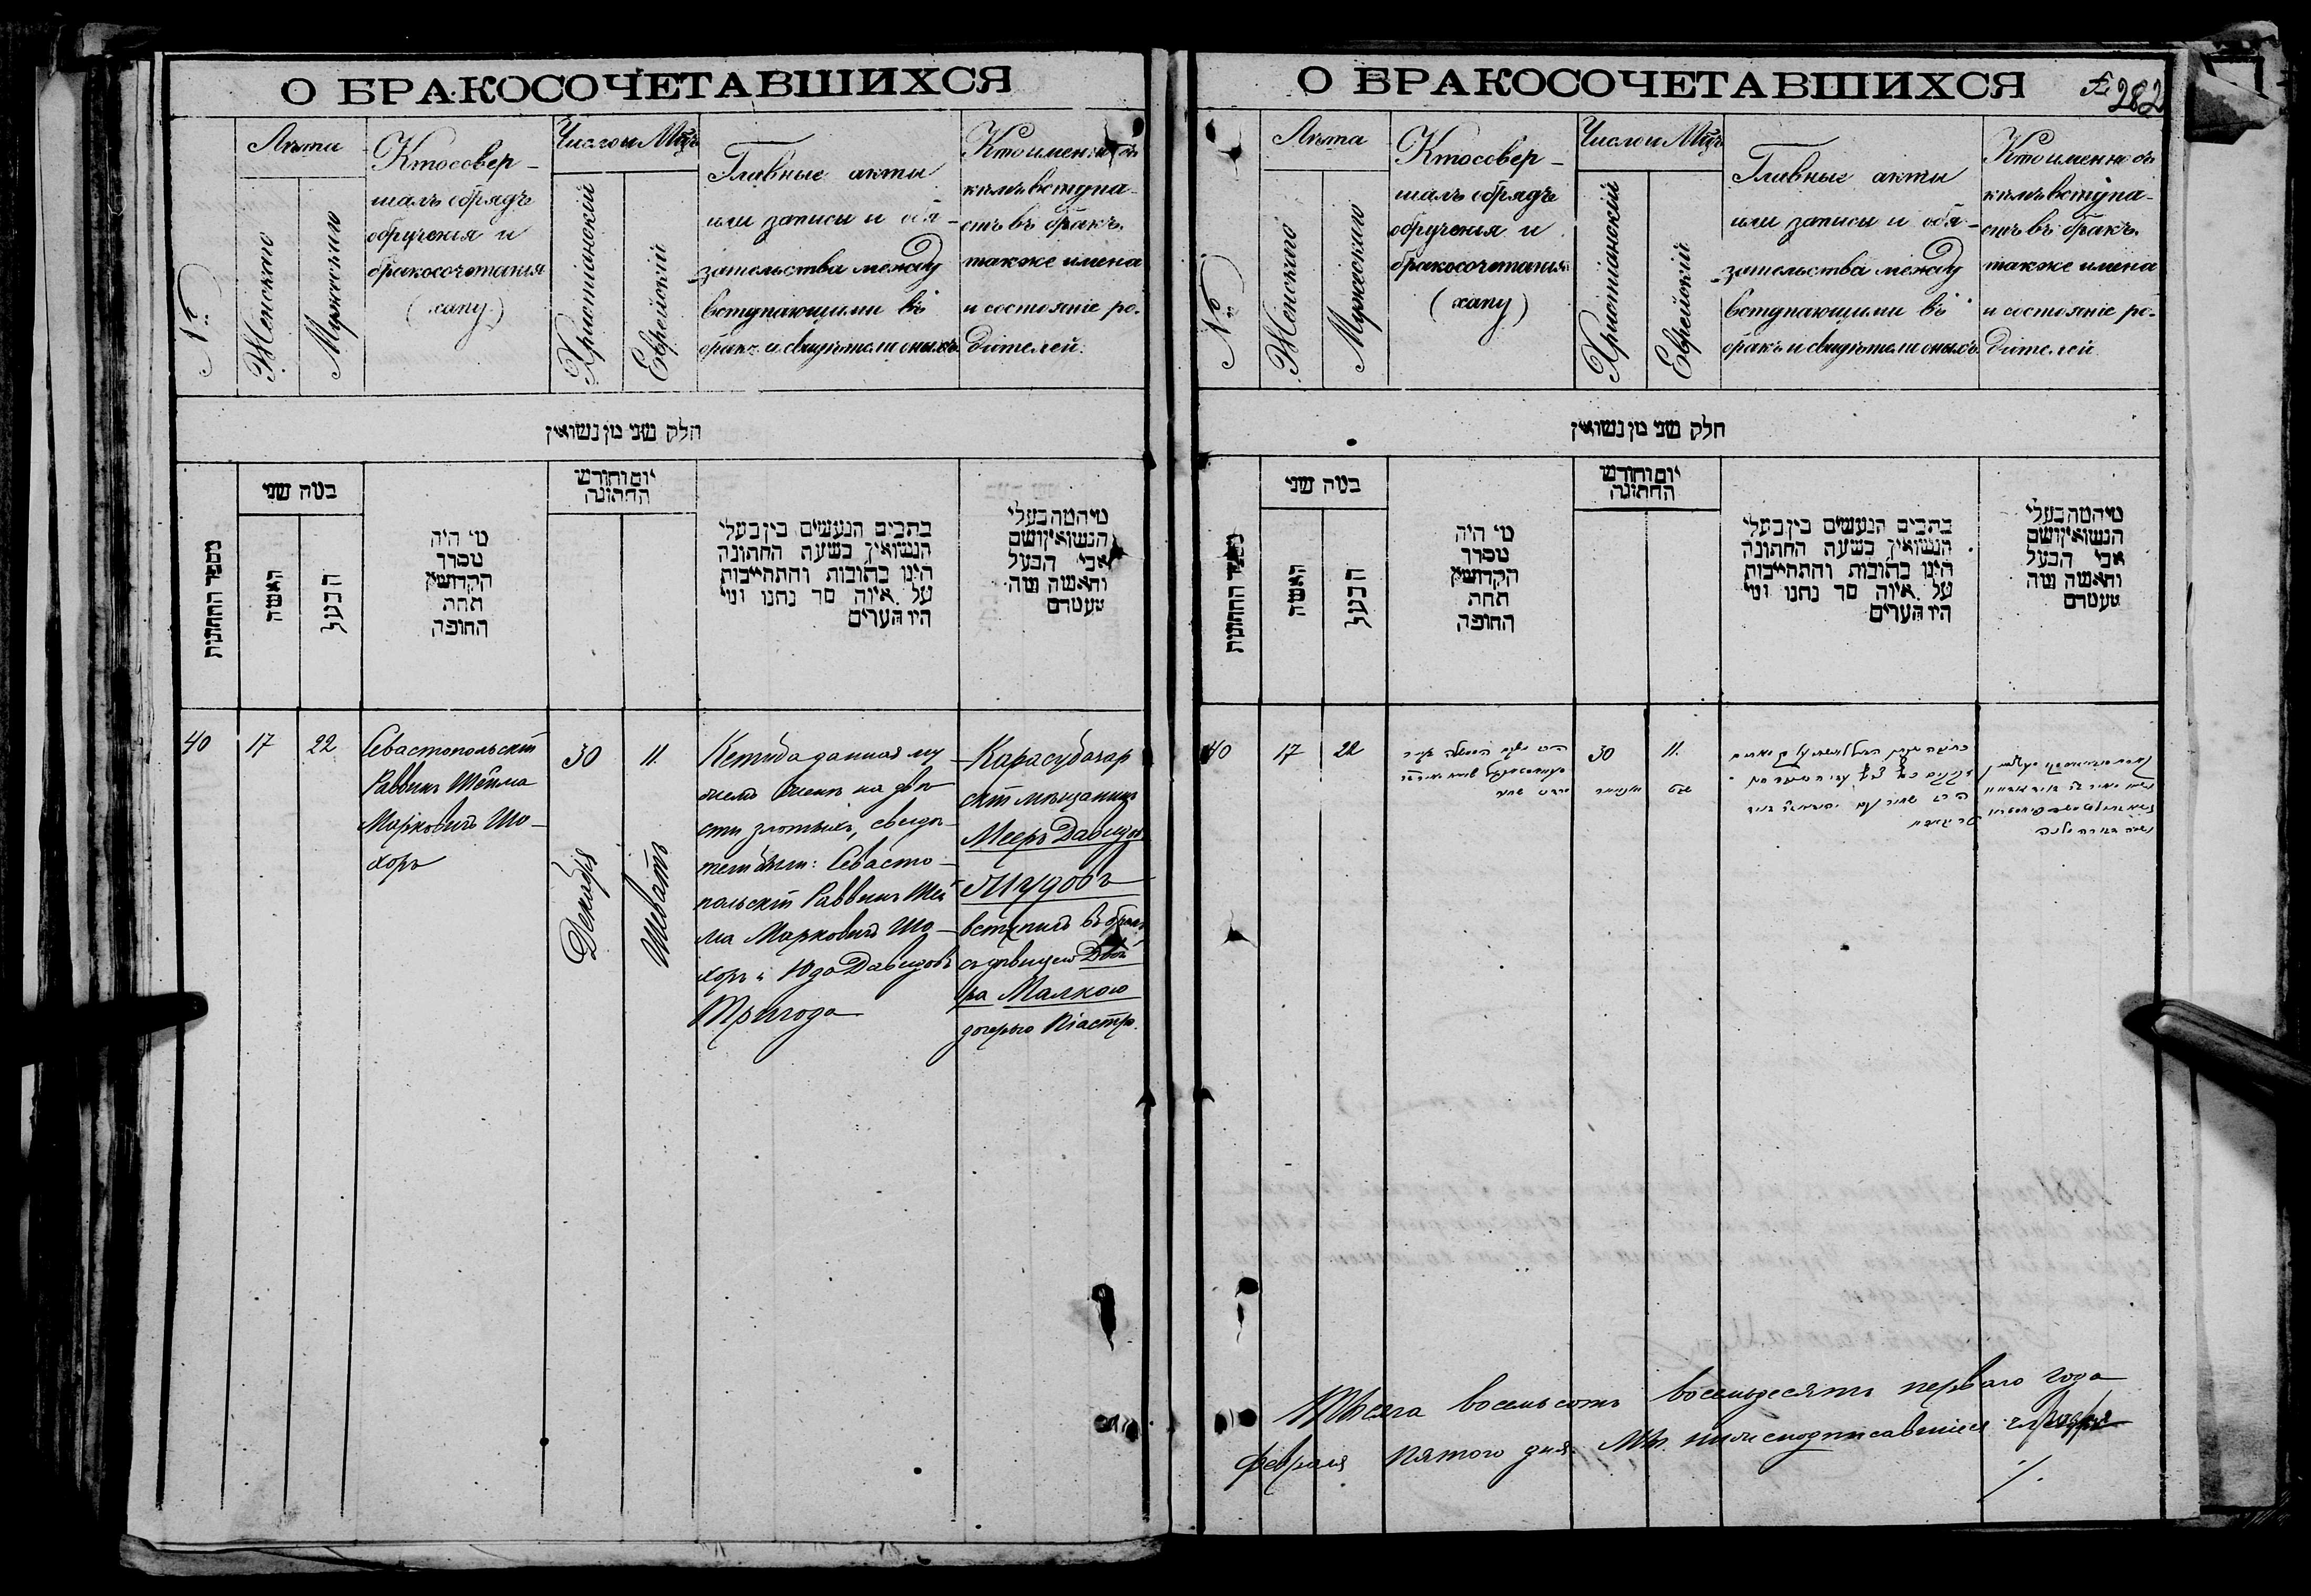 О БРАКОСОЧЕТАВШИХСЯ
№
Лѣта
Женскаго
Мужескаго
Кто совер-
шалъ обрядъ
обрученія и
бракосочетанія
(хапу)
Число и Мцъ
Христіанскій
Еврейскій
Главные акты
или записи и обя-
зательства между
вступающими въ
бракъ и свидѣтели оныхъ
Кто именно съ
кѣмъ вступа-
етъ въ бракъ,
также имена
и состояніе ро-
дителей.
חלק שני מן נשואין
מספר החתונות
במה שני
האשה
הבעל
מי היה
מסדר
הקדושין
תחת
החופה
יום וחודש
החתונה
כתבים הנעשים בין בעלי
הנשואין בשעת החתונה
היינו כתובות והתחייבות
על איזה סך נתנו ומי
היו העדים
מי המה בעלי
הנשואין ושם
אבי הבעל
והאשה ומה
מעמדם
40
17
22
Севастопольскій
Раввинъ Шейма
Марковичъ Шо-
хоръ
30
Декабря
11.
Шеватъ
Кетуба данная му
жемъ женѣ на двѣ
сти злотыхъ, свидѣ-
тели были: Севасто-
польскій Раввинъ Шей
ма Марковичъ Шо-
хоръ и Юда Давидовъ
Тригода
Карасубазар
скій мѣщанинъ
Мееръ Давидовъ
вступилъ въ бракъ
съ дѣвицею Двой
ра Малкою
дочерью Піастро.
О БРАКОСОЧЕТАВШИХСЯ
282
№
Лѣта
Женскаго
Мужескаго
Кто совер-
шалъ обрядъ
обрученія и
бракосочетанія
(хапу)
Число и Мцъ
Христіанскій
Еврейскій
Главные акты
или записи и обя-
зательства между
вступающими въ
бракъ и свидѣтели оныхъ
Кто именно съ
кѣмъ вступа-
етъ въ бракъ,
также имена
и состояніе ро-
дителей.
חלק שני מן נשואין
מספר החתונות
במה שני
האשה
הבעל
מי היה
מסדר
הקדושין
תחת
החופה
יום וחודש
החתונה
כתבים הנעשים בין בעלי
הנשואין בשעת החתונה
היינו כתובות והתחייבות
על איזה סך נתנו ומי
היו העדים
מי המה בעלי
הנשואין ושם
אבי הבעל
והאשה ומה
מעמדם
40
17
22
30
11.
שבט
Тысяча восемьсотъ восемьдесятъ перваго года
февраля пятого дня. Мы нижеподписавшіеся